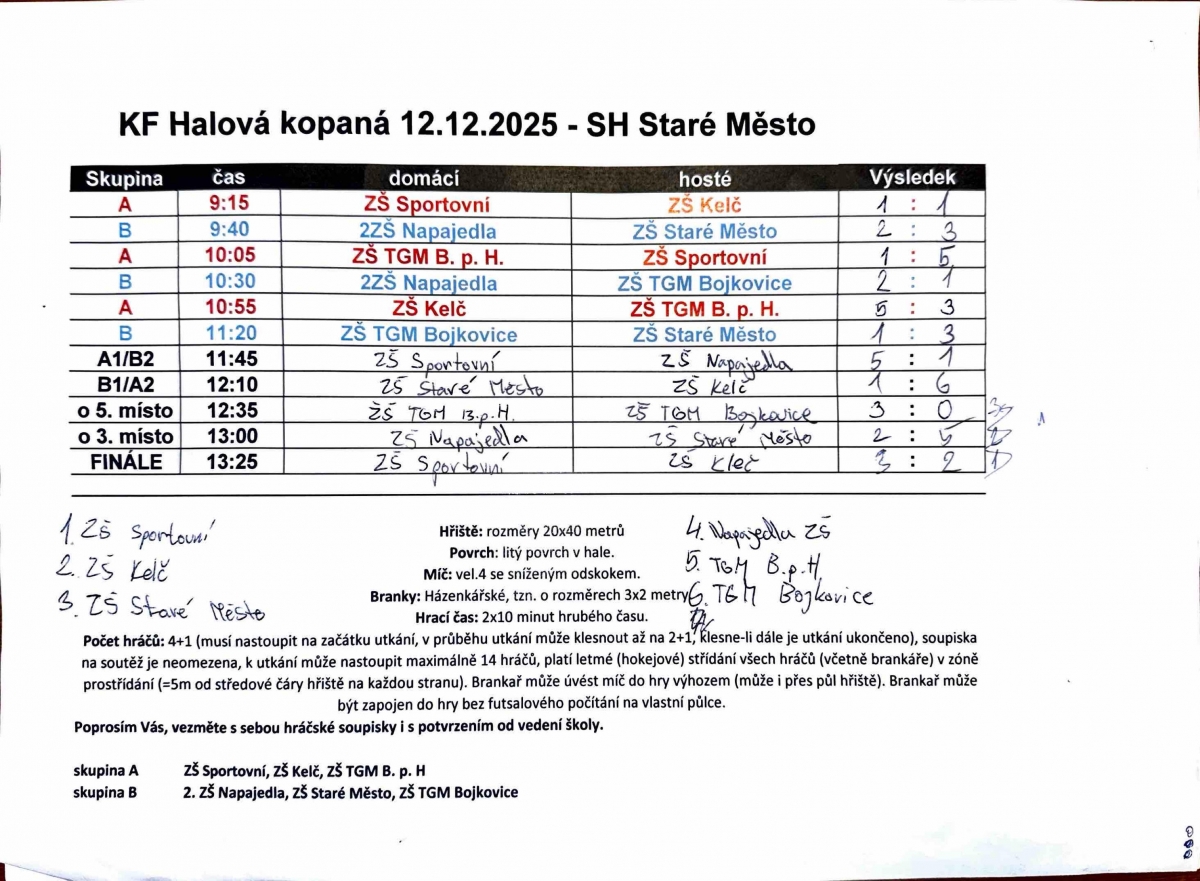 KF Halová kopaná 12.12.2025 - SH Staré Město
Skupina čas domácí hosté Výsledek
A 9:15 ZŠ Sportovní ZŠ Kelč 1 : 1
B 9:40 2ZŠ Napajedla ZŠ Staré Město 2 : 3
A 10:05 ZŠ TGM B. p. H. ZŠ Sportovní 1 : 5
B 10:30 2ZŠ Napajedla ZŠ TGM Bojkovice 2 : 1
A 10:55 ZŠ Kelč ZŠ TGM B. p. H. 5 : 3
B 11:20 ZŠ TGM Bojkovice ZŠ Staré Město 1 : 3
A1/B2 11:45 ZŠ Sportovní ZŠ Napajedla 5 : 1
B1/A2 12:10 ZŠ Staré Město ZŠ Kelč 1 : 6
o 5. místo 12:35 ZŠ TGM B.p.H. ZŠ TGM Bojkovice 3 : 0
o 3. místo 13:00 ZŠ Napajedla ZŠ Staré Město 2 : 5
FINÁLE 13:25 ZŠ Sportovní ZŠ Kleč 3 : 2
1. ZŠ Sportovní
2. ZŠ Kelč
3. ZŠ Staré Město
Hřiště: rozměry 20x40 metrů
Povrch: litý povrch v hale.
Míč: vel.4 se sníženým odskokem.
Branky: Házenkářské, tzn. o rozměrech 3x2 metry
Hrací čas: 2x10 minut hrubého času.
4. Napajedla ZŠ
5. TGM B.p.H
6. TGM Bojkovice
Počet hráčů: 4+1 (musí nastoupit na začátku utkání, v průběhu utkání může klesnout až na 2+1, klesne-li dále je utkání ukončeno), soupiska
na soutěž je neomezena, k utkání může nastoupit maximálně 14 hráčů, platí letmé (hokejové) střídání všech hráčů (včetně brankáře) v zóně
prostřídání (=5m od středové čáry hřiště na každou stranu). Brankař může úvést míč do hry výhozem (může i přes půl hřiště). Brankař může
být zapojen do hry bez futsalového počítání na vlastní půlce.
Poprosím Vás, vezměte s sebou hráčské soupisky i s potvrzením od vedení školy.
skupina A ZŠ Sportovní, ZŠ Kelč, ZŠ TGM B. p. H
skupina B 2. ZŠ Napajedla, ZŠ Staré Město, ZŠ TGM Bojkovice